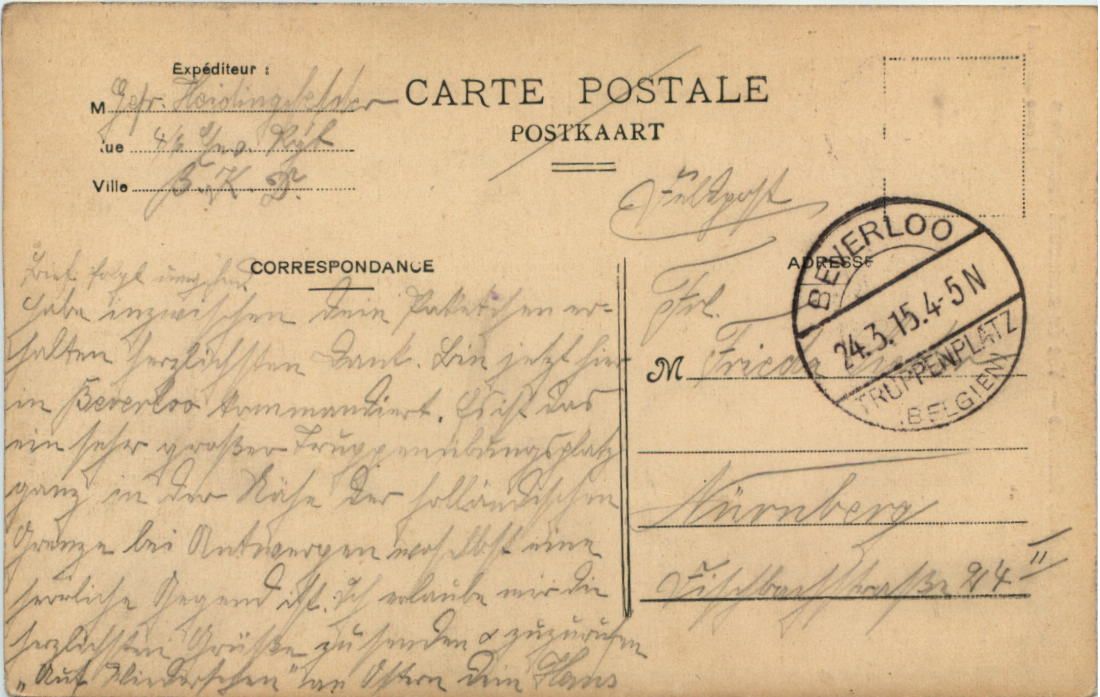 Expéditeur :
M Gefr. Heidingsfelder
Rue 4/6 Inf. Rgt
Ville B. K. P.
CARTE POSTALE
POSTKAART
Feldpost
BEVERLOO
24.3.15.4-5N
TRUPPENPLATZ
(BELGIEN)
CORRESPONDANCE
ADRESSE
Brief folgt umgehend.
Habe inzwischen Dein Paketchen er-
halten herzlichsten Dank. Bin jetzt hier
in Beverloo kommandiert. Es ist das
ein sehr großer Truppenübungsplatz
ganz in der Nähe der holländischen
Grenze bei Antwerpen woselbst eine
herrliche Gegend ist. Ich erlaube mir die
herzlichsten Grüße zu senden & zuzurufen
„Auf Wiedersehen" an Ostern Dein Hans
Frl.
M Frieda
Nürnberg
Fischbachstraße 24 II